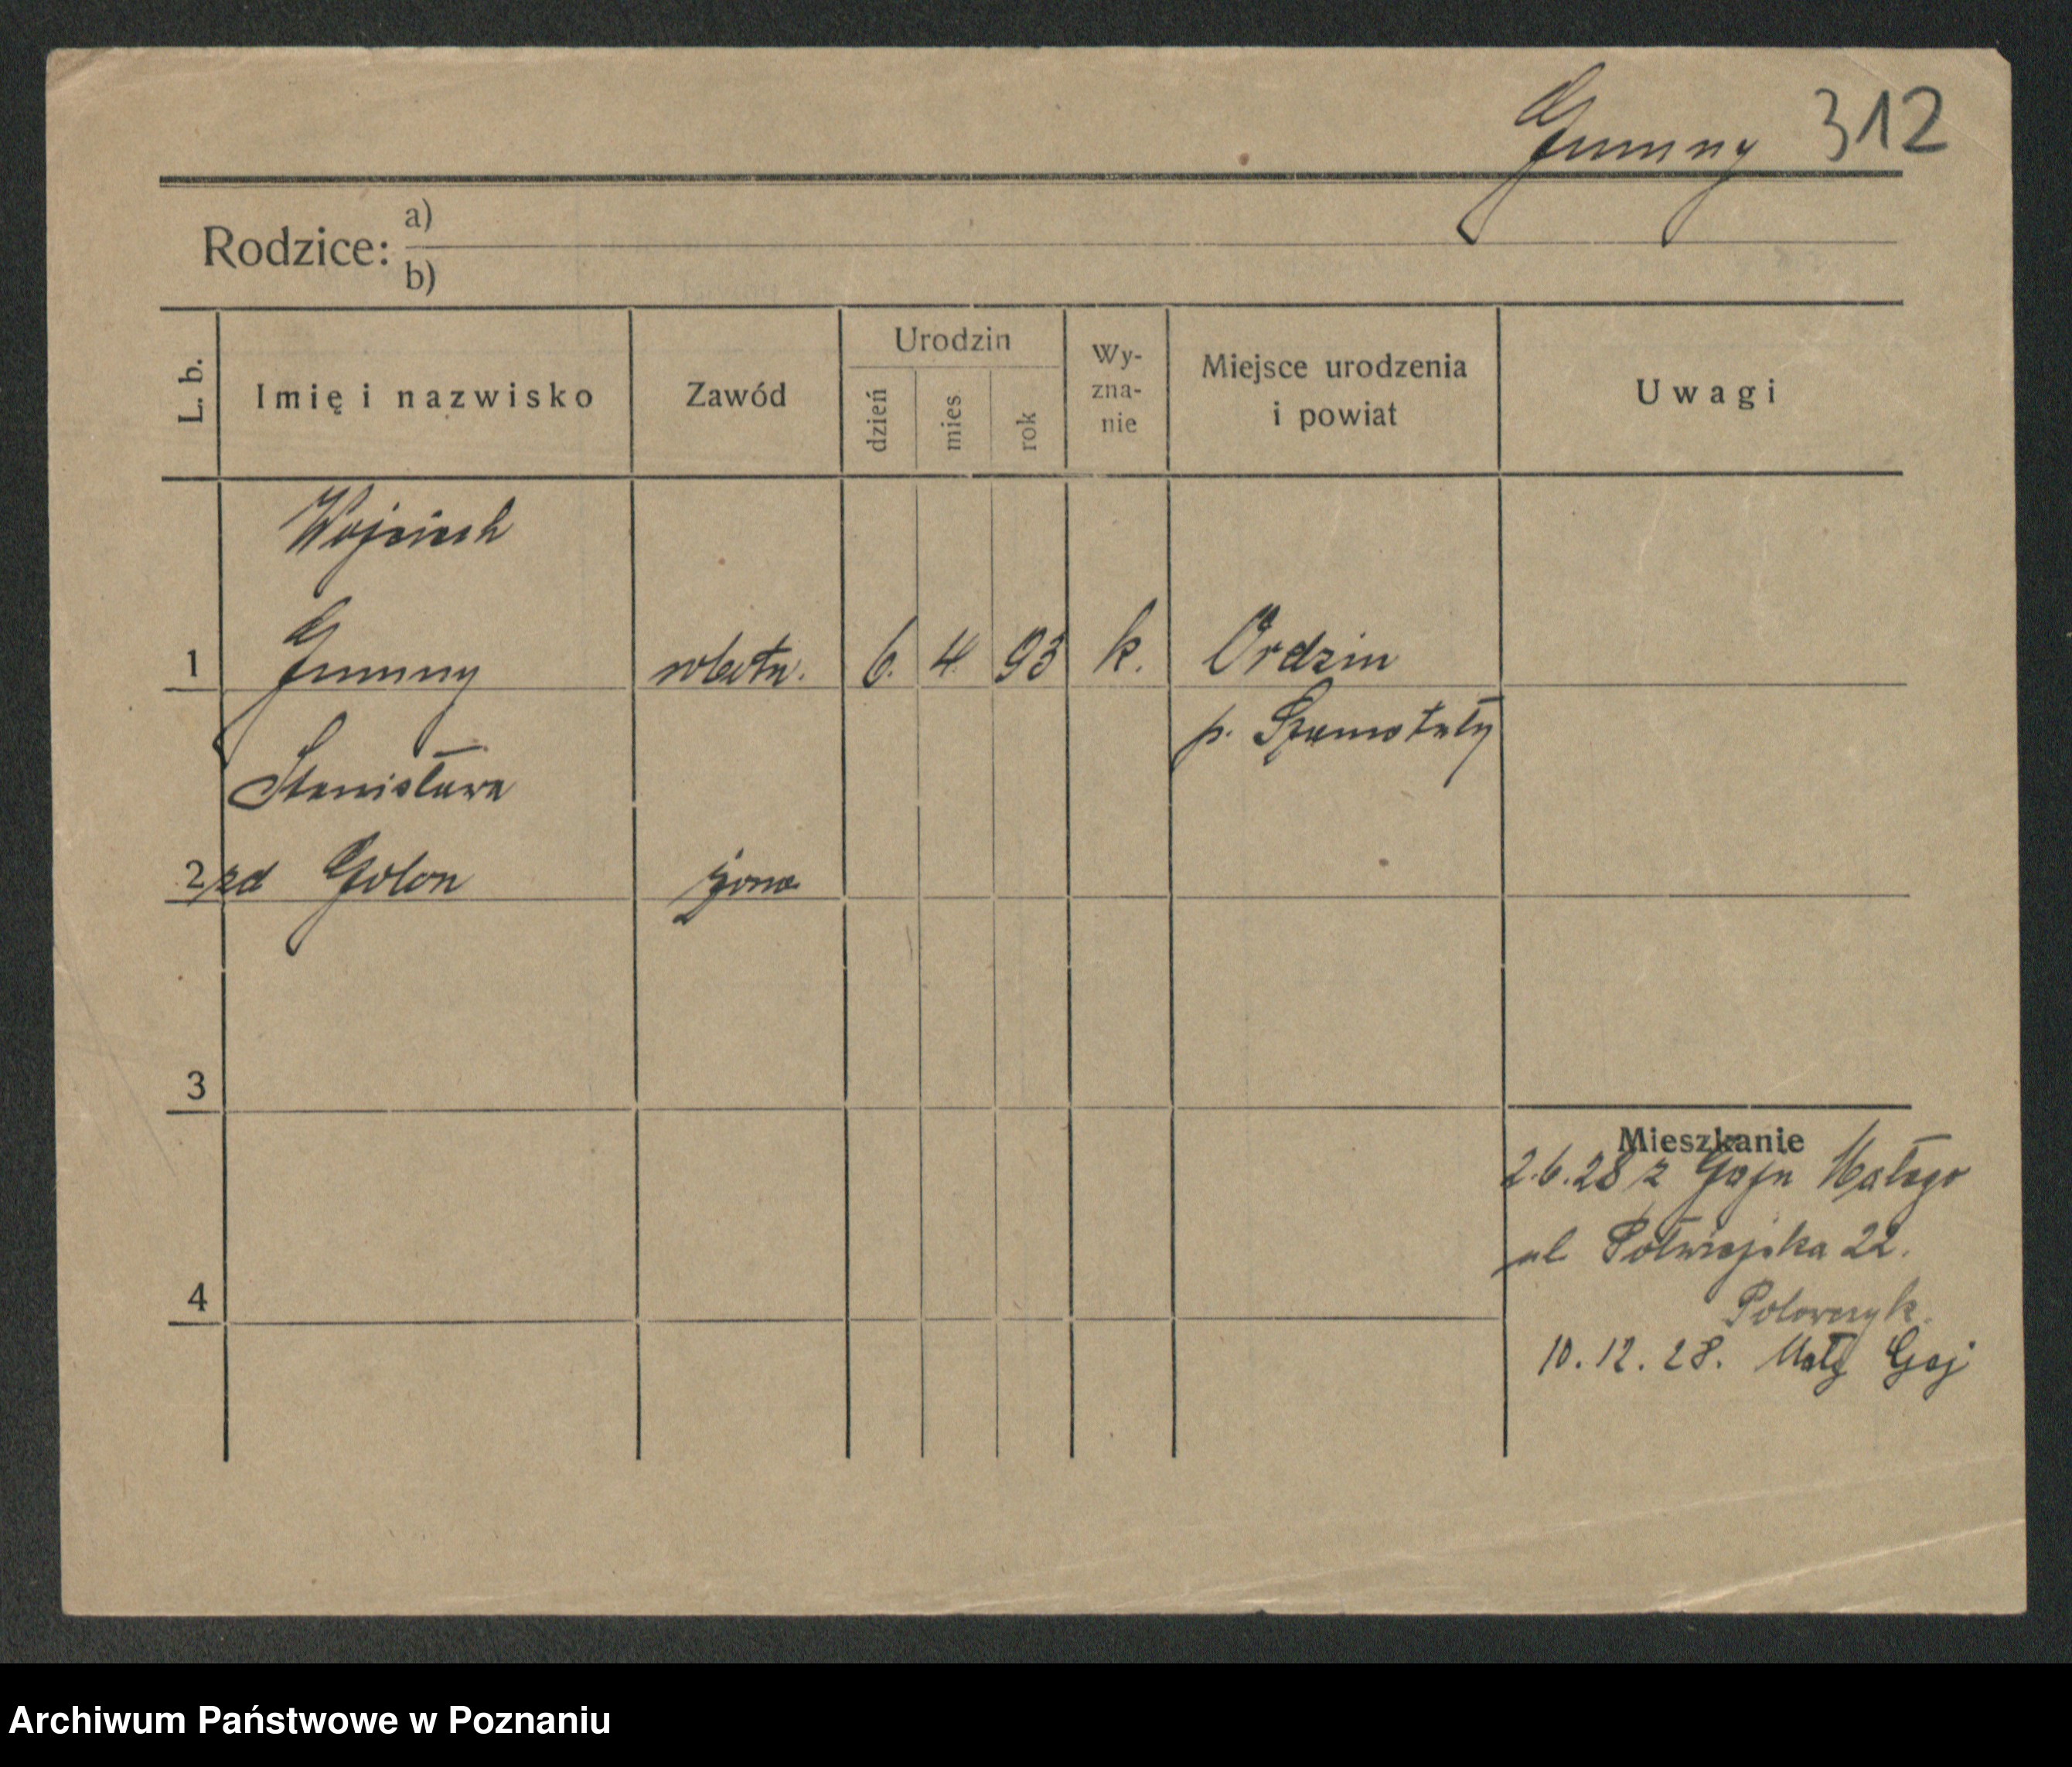 Gumny 312
Rodzice: a)
b)
L. b. Imię i nazwisko Zawód Urodzin dzień mies. rok Wy-zna-nie Miejsce urodzenia i powiat Uwagi
Wojciech
1 Gumny robotn. 6. 4. 93 k. Ordzin
p. Szamotuły
Stanisława
2 zd Golon żona
3
Mieszkanie
2.6.28 z Gaju Małego
ul Półwiejska 22.
4 Polowczyk.
10.12.28. Mały Gaj
Archiwum Państwowe w Poznaniu